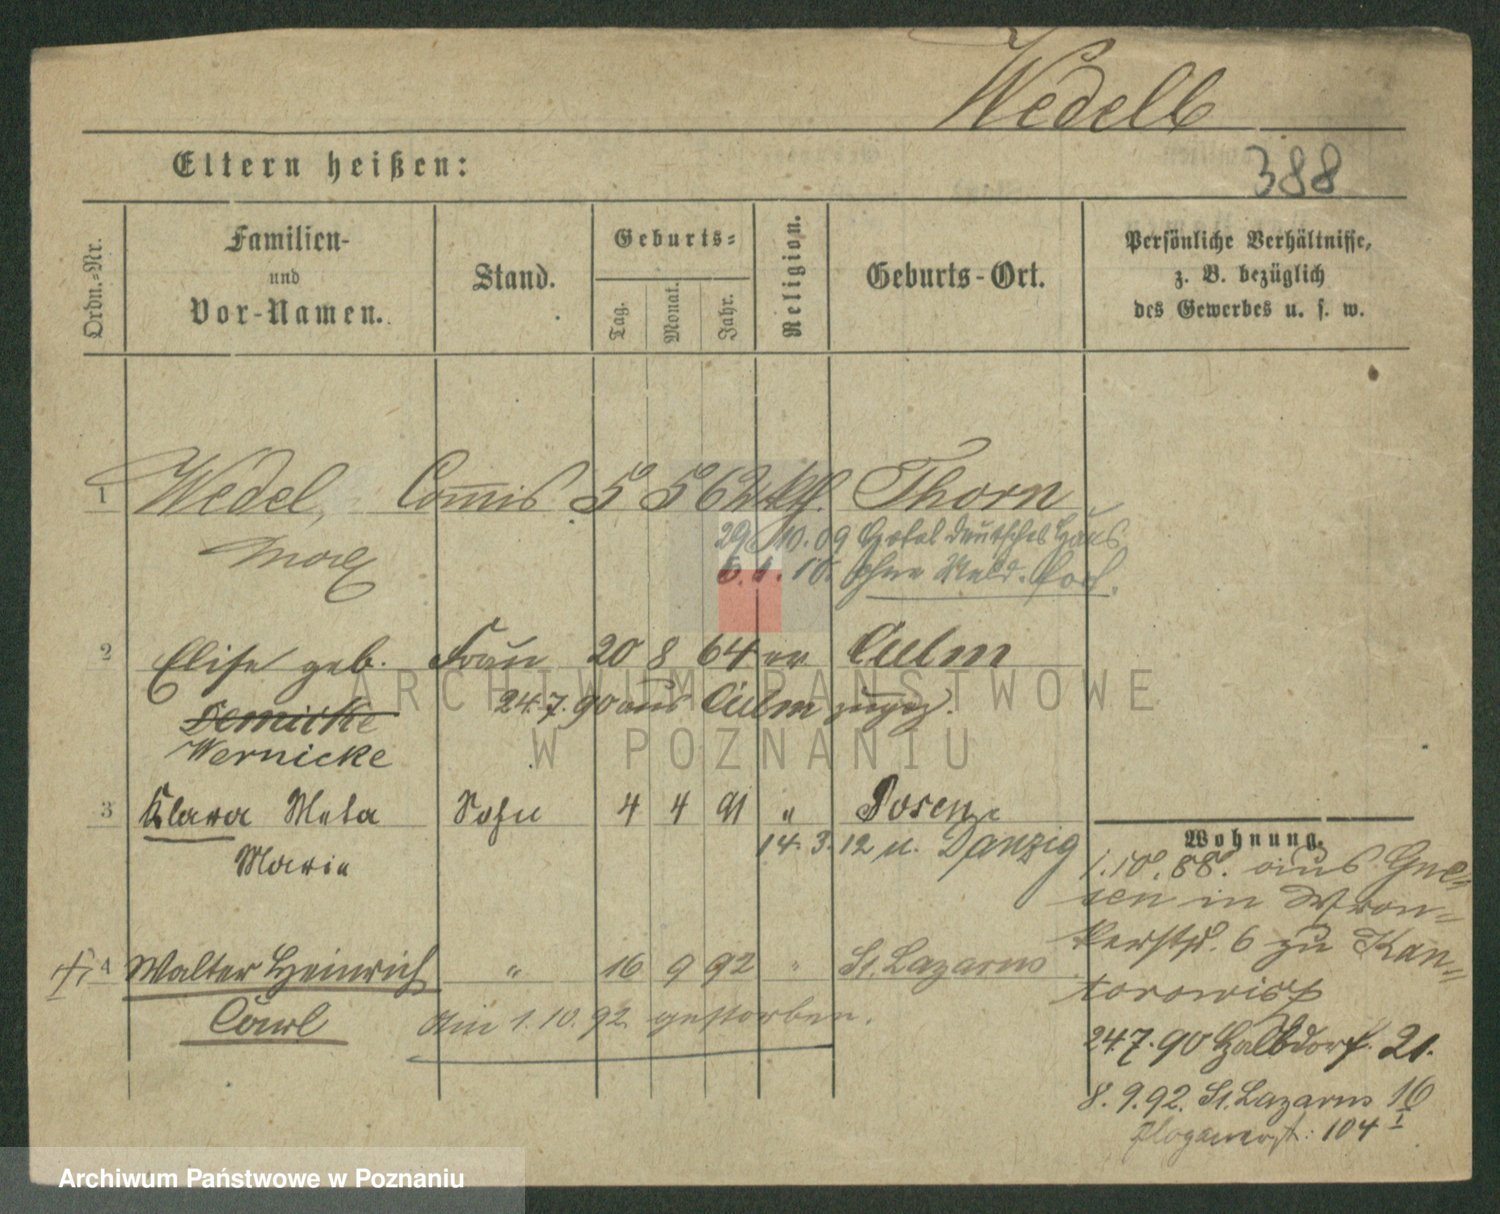 Wedell
Eltern heißen:
388
Ordn.-Nr.
Familien-
und
Vor-Namen.
Stand.
Geburts-
Tag.
Monat.
Jahr.
Religion.
Geburts-Ort.
Persönliche Verhältnisse,
z. B. bezüglich
des Gewerbes u. s. w.
1 Wedel, Commis 5 5 62 Thorn
Max
29. 10. 09 Hotel deutsches Haus
6. 1. 10. ohne Meld. fort.
2 Elise geb. Frau 20 8 64 ev Culm
24.7.90 aus Culm zugez.
Wernicke
3 Klara Meta Sohn 4 4 91 " Posen
Maria
14. 3. 12 n. Danzig
4 Walter Heinrich " 16 9 92 " St. Lazarus
Carl
am 1. 10. 92 gestorben.
Wohnung.
1.10.88. aus Gne-
sen in Wron-
kerstr. 6 zu Kan-
torowicz
24.7.90 Halbdorf. 21.
8.9.92. St. Lazarus 16
Glogauerst. 104 I
ARCHIWUM PAŃSTWOWE
W POZNANIU
Archiwum Państwowe w Poznaniu